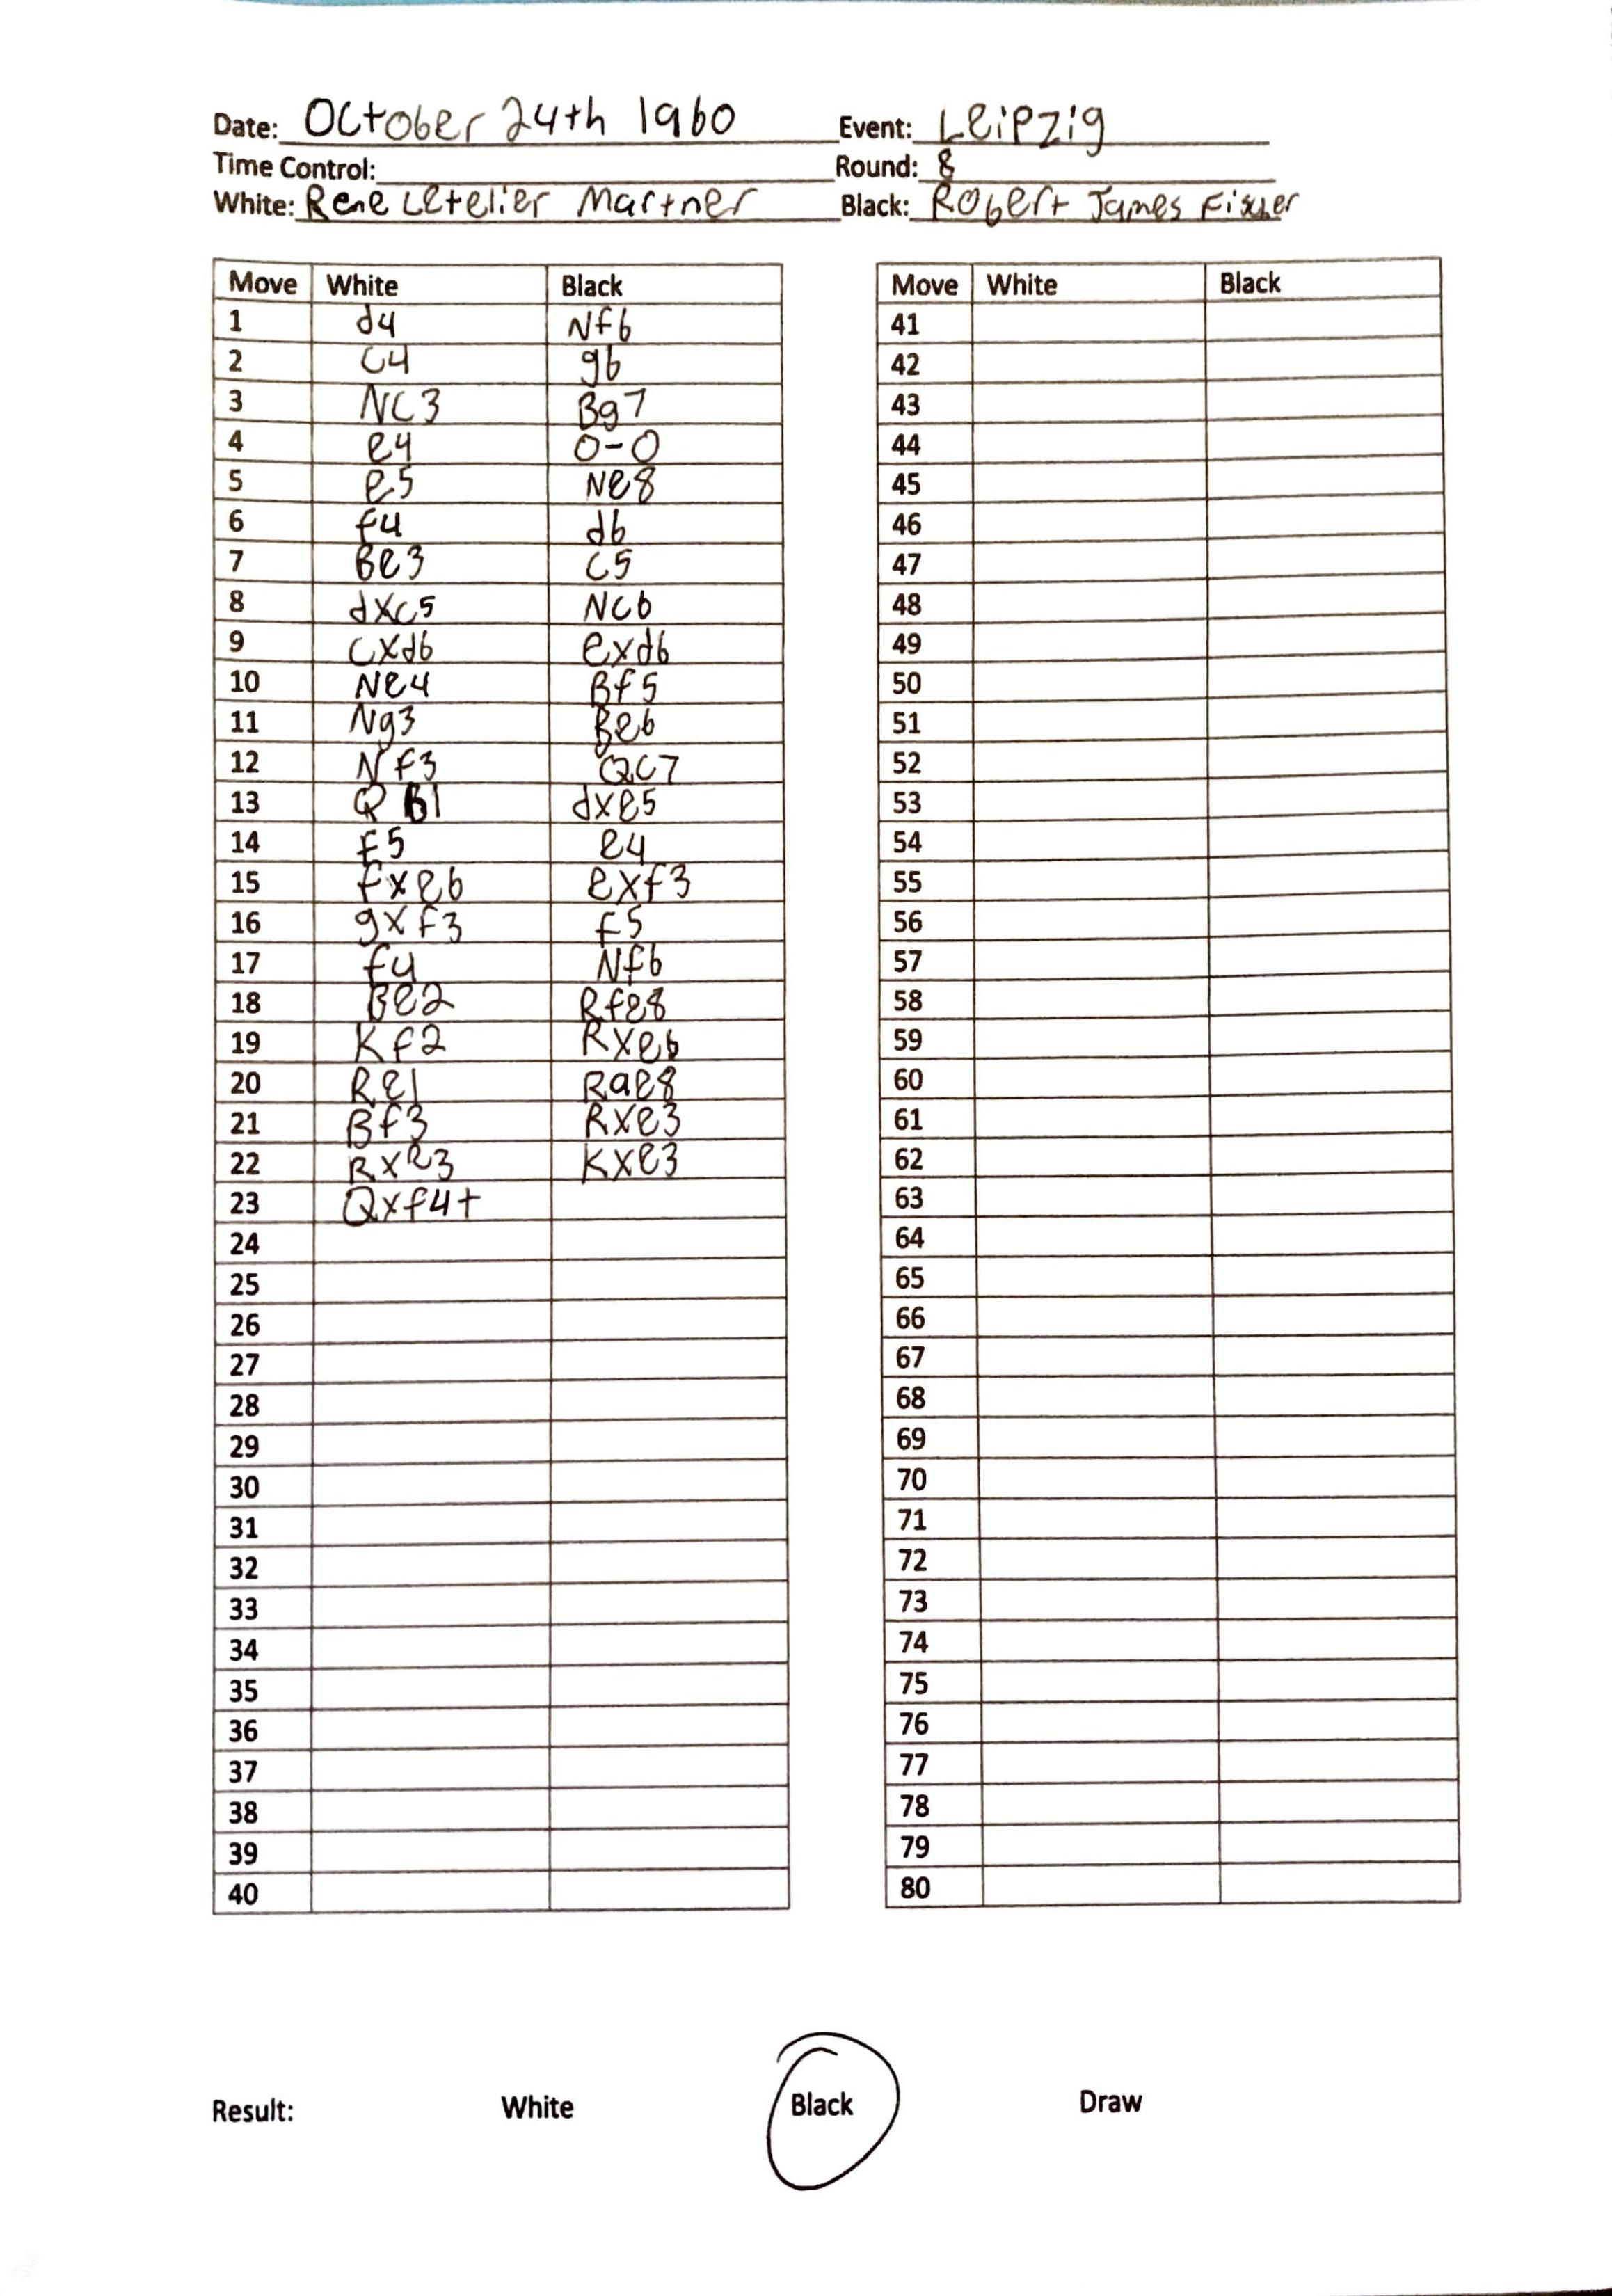 Date: October 24th 1960 Event: Leipzig
Time Control: Round: 8
White: Rene Letelier Martner Black: Robert James Fischer
Move White Black
1 d4 Nf6
2 c4 g6
3 Nc3 Bg7
4 e4 0-0
5 e5 Ne8
6 f4 d6
7 Be3 c5
8 dxc5 Nc6
9 cxd6 exd6
10 Ne4 Bf5
11 Ng3 Be6
12 Nf3 Qc7
13 Q B1 dxe5
14 f5 e4
15 fxe6 exf3
16 gxf3 f5
17 f4 Nf6
18 Be2 Rfe8
19 Kf2 Rxe6
20 Re1 Rae8
21 Bf3 Rxe3
22 Rxe3 Kxe3
23 Qxf4+
24
25
26
27
28
29
30
31
32
33
34
35
36
37
38
39
40
Move White Black
41
42
43
44
45
46
47
48
49
50
51
52
53
54
55
56
57
58
59
60
61
62
63
64
65
66
67
68
69
70
71
72
73
74
75
76
77
78
79
80
Result: White Black Draw